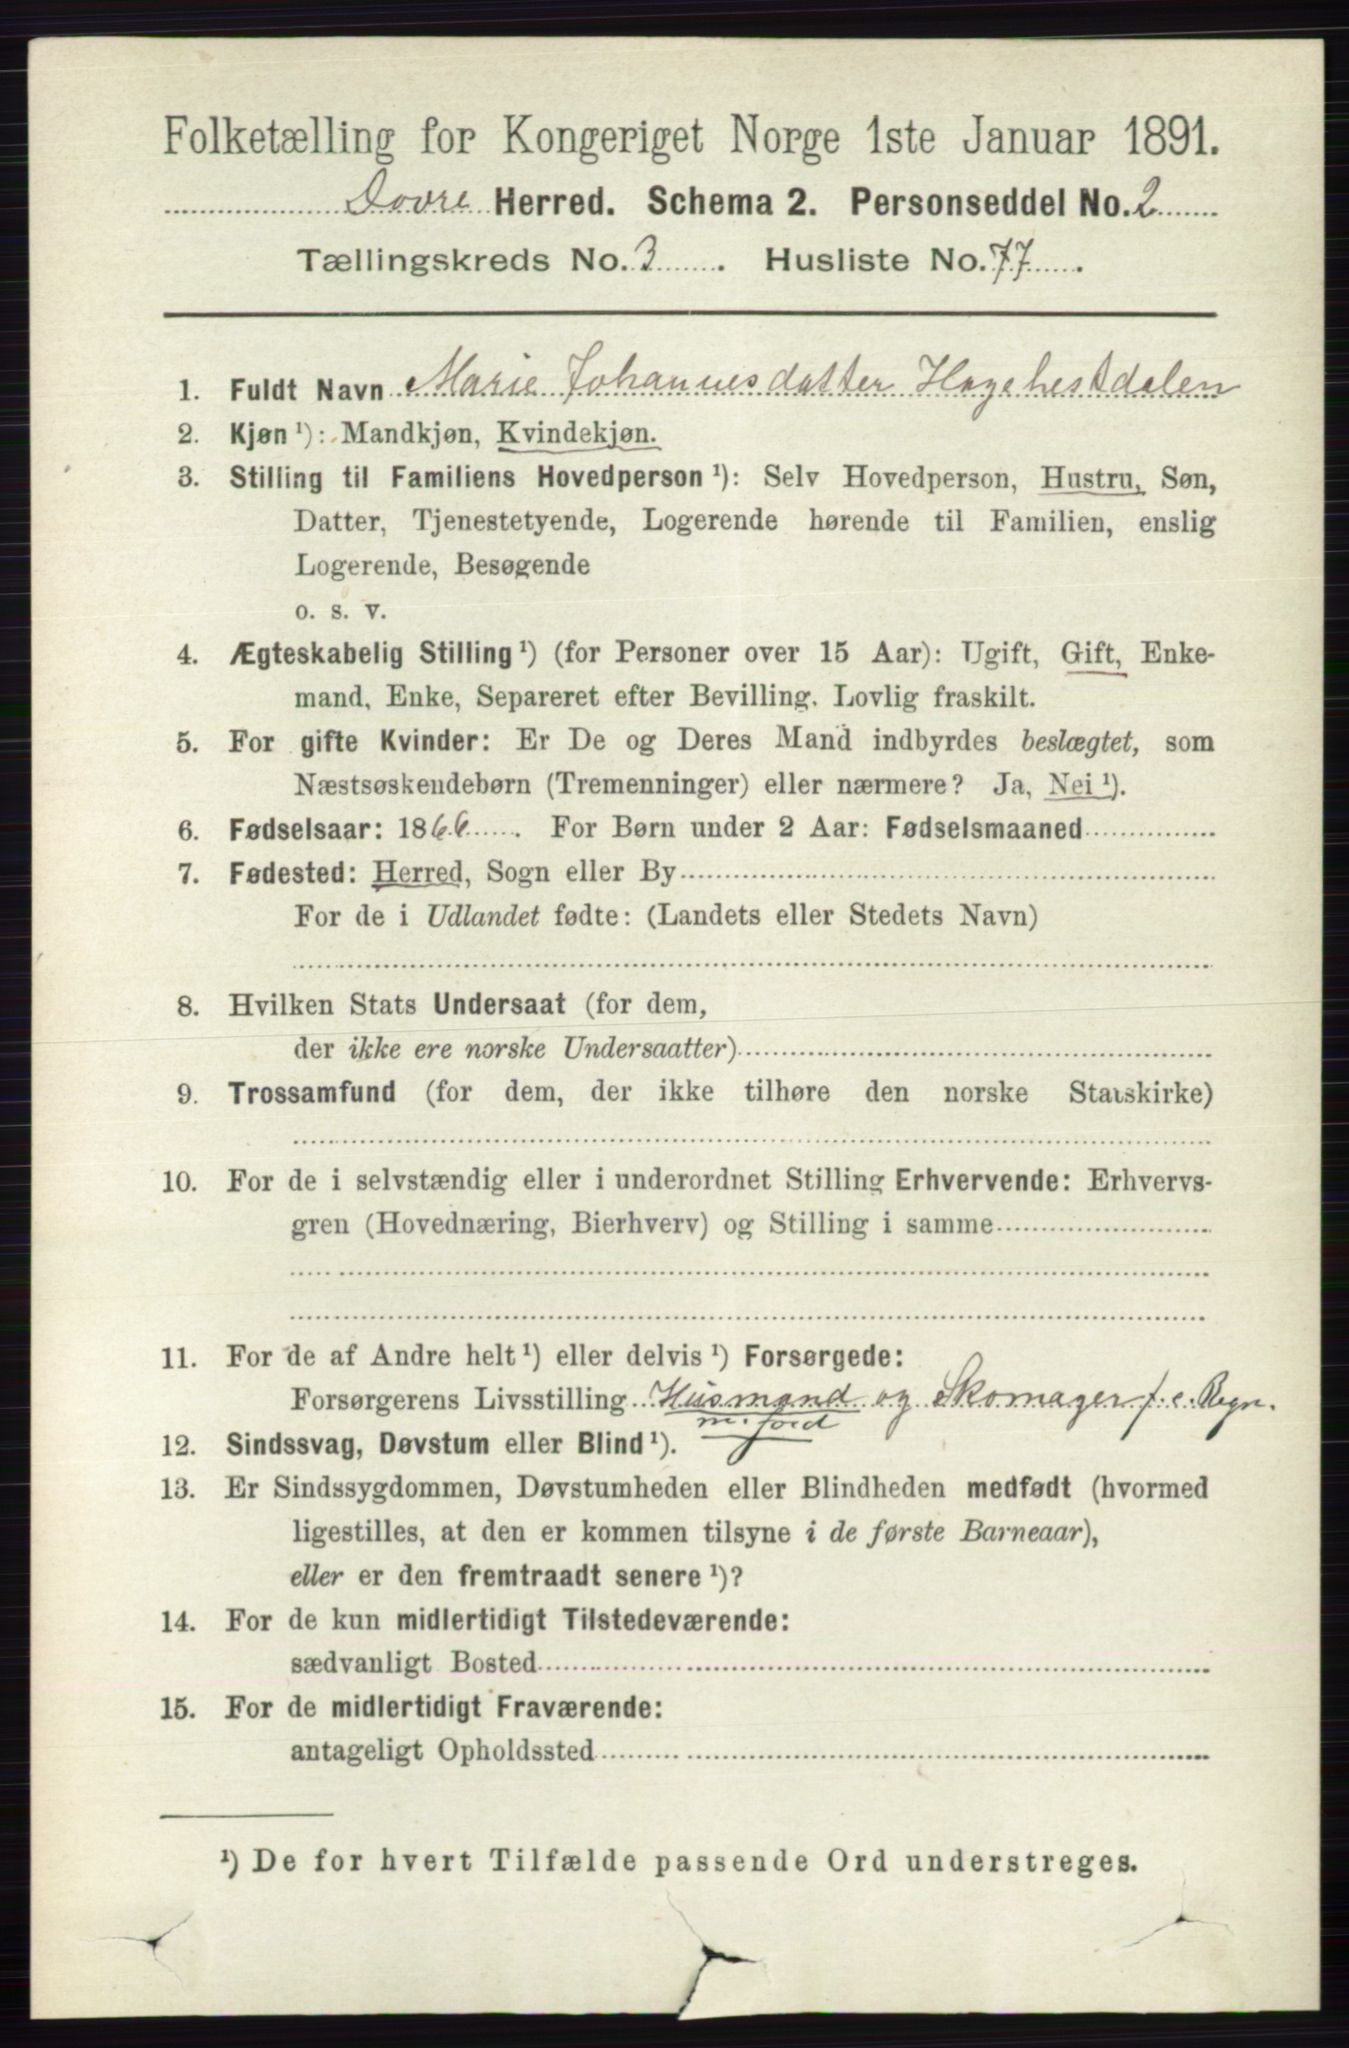 Folketælling for Kongeriget Norge 1ste Januar 1891.
Dovre Herred. Schema 2. Personseddel No. 2
Tællingskreds No. 3. Husliste No. 77.
1. Fuldt Navn Marie Johannesdatter Hagehestdalen
2. Kjøn ¹): Mandkjøn, Kvindekjøn.
3. Stilling til Familiens Hovedperson ¹): Selv Hovedperson, Hustru, Søn,
Datter, Tjenestetyende, Logerende hørende til Familien, enslig
Logerende, Besøgende
o. s. v.
4. Ægteskabelig Stilling ¹) (for Personer over 15 Aar): Ugift, Gift, Enke-
mand, Enke, Separeret efter Bevilling. Lovlig fraskilt.
5. For gifte Kvinder: Er De og Deres Mand indbyrdes beslægtet, som
Næstsøskendebørn (Tremenninger) eller nærmere? Ja, Nei ¹).
6. Fødselsaar: 1866. For Børn under 2 Aar: Fødselsmaaned
7. Fødested: Herred, Sogn eller By
For de i Udlandet fødte: (Landets eller Stedets Navn)
8. Hvilken Stats Undersaat (for dem,
der ikke ere norske Undersaatter)
9. Trossamfund (for dem, der ikke tilhøre den norske Statskirke)
10. For de i selvstændig eller i underordnet Stilling Erhvervende: Erhvervs-
gren (Hovednæring, Bierhverv) og Stilling i samme
11. For de af Andre helt ¹) eller delvis ¹) Forsørgede:
Forsørgerens Livsstilling Husmand og Skomager f. e. Regn.
m. jord
12. Sindssvag, Døvstum eller Blind ¹).
13. Er Sindssygdommen, Døvstumheden eller Blindheden medfødt (hvormed
ligestilles, at den er kommen tilsyne i de første Barneaar),
eller er den fremtraadt senere ¹)?
14. For de kun midlertidigt Tilstedeværende:
sædvanligt Bosted
15. For de midlertidigt Fraværende:
antageligt Opholdssted
¹) De for hvert Tilfælde passende Ord understreges.